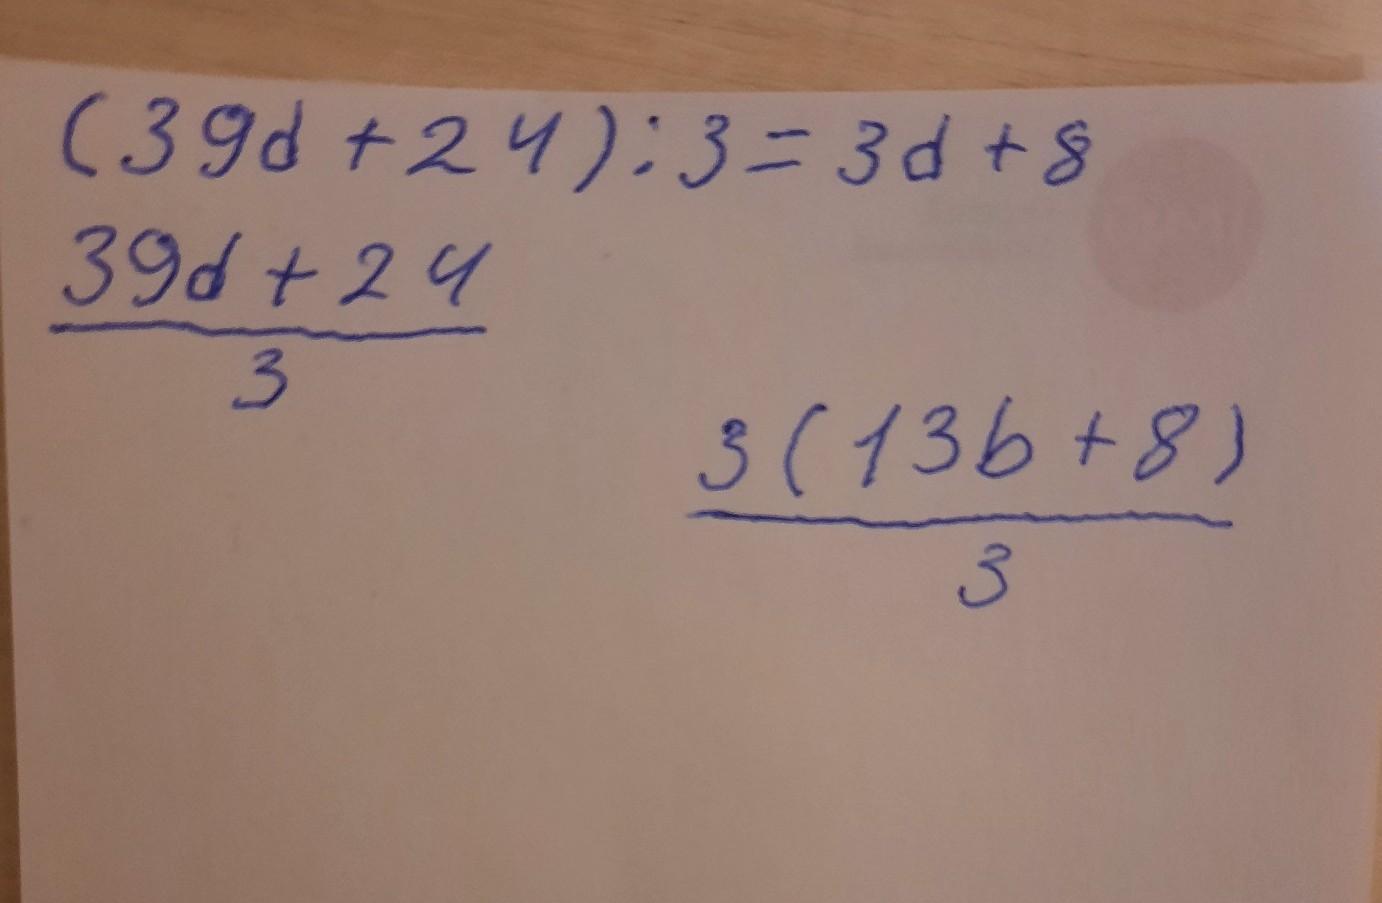 (39d+24):3=3d+8
39d+24
3
3(13b+8)
3